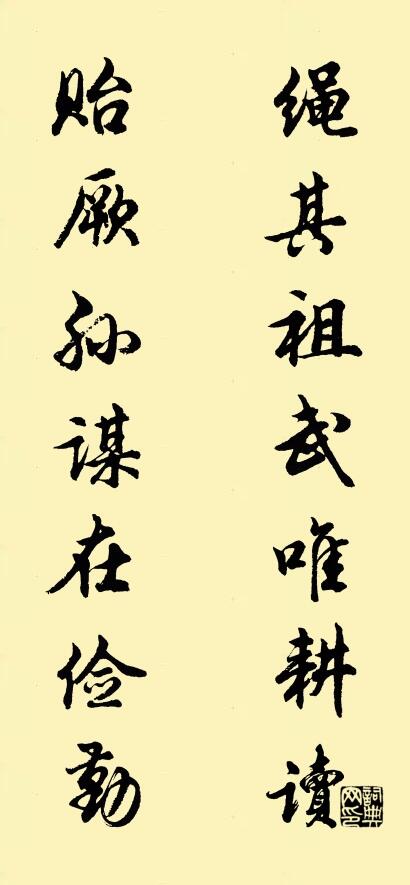 绳其祖武唯耕读
贻厥孙谋在俭勤
詞典网印